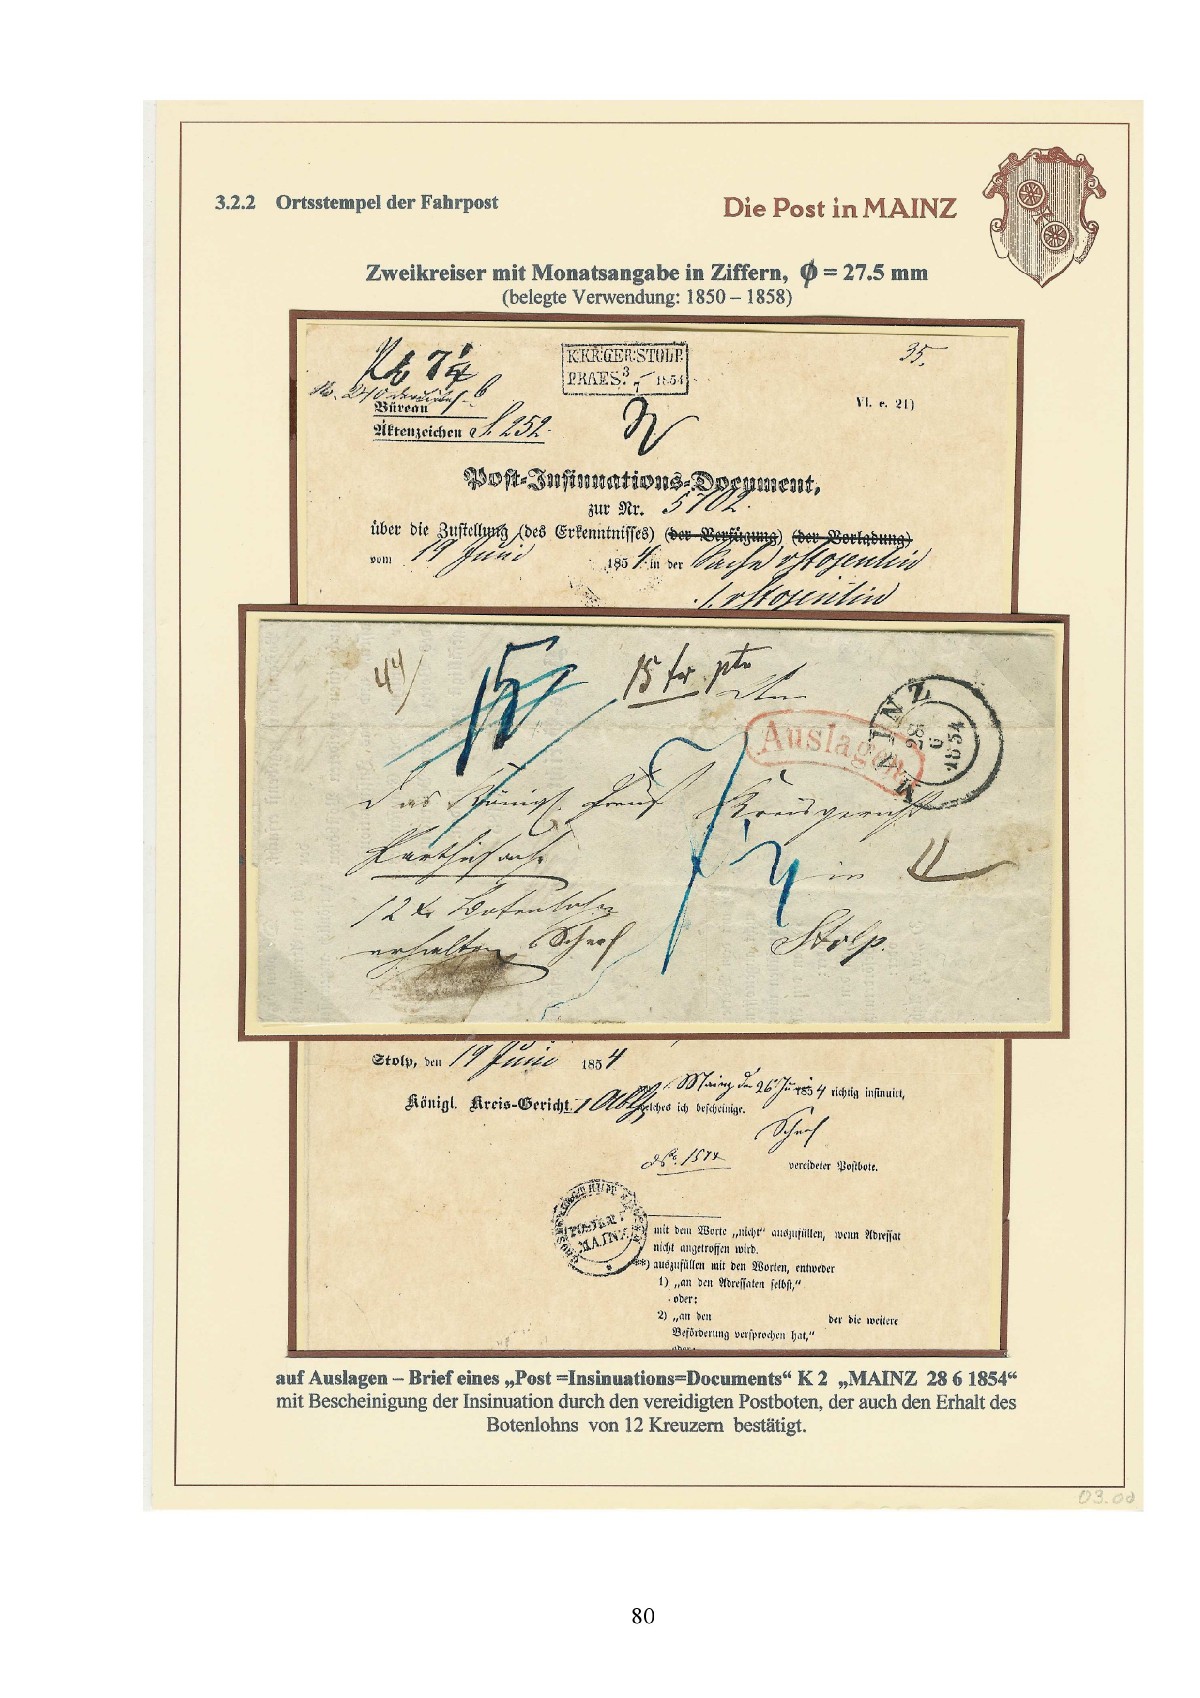 3.2.2 Ortsstempel der Fahrpost
Die Post in MAINZ
Zweikreiser mit Monatsangabe in Ziffern, ϕ = 27.5 mm
(belegte Verwendung: 1850 – 1858)
K.KR:GER:STOLP.
PRAES. 3/7 1854
35.
VI. c. 21)
Büreau
Aktenzeichen 252.
Post-Insinuations-Document,
zur Nr. 5702.
über die Zustellung (des Erkenntnisses) (der Verfügung) (der Vorladung)
vom 19 Juni 1854 in der Sache
44/
15
15
Auslagen
MAINZ
28
6
1854
Das Königl. Kreisgericht
in
12 Botenlohn
erhalten Scherf
Stolp.
Stolp, den 19 Juni 1854
Mainz d. 26 Juni 1854 richtig insinuirt,
Königl. Kreis-Gericht, welches ich bescheinige.
Scherf
vereideter Postbote.
POSTAMT
MAINZ
mit dem Worte „nicht“ auszufüllen, wenn Adressat
nicht angetroffen wird.
**) auszufüllen mit den Worten, entweder
1) „an den Adressaten selbst,“
oder:
2) „an den der die weitere
Beförderung versprochen hat,“
oder:
auf Auslagen – Brief eines „Post =Insinuations=Documents“ K 2 „MAINZ 28 6 1854“
mit Bescheinigung der Insinuation durch den vereidigten Postboten, der auch den Erhalt des
Botenlohns von 12 Kreuzern bestätigt.
03.00
80